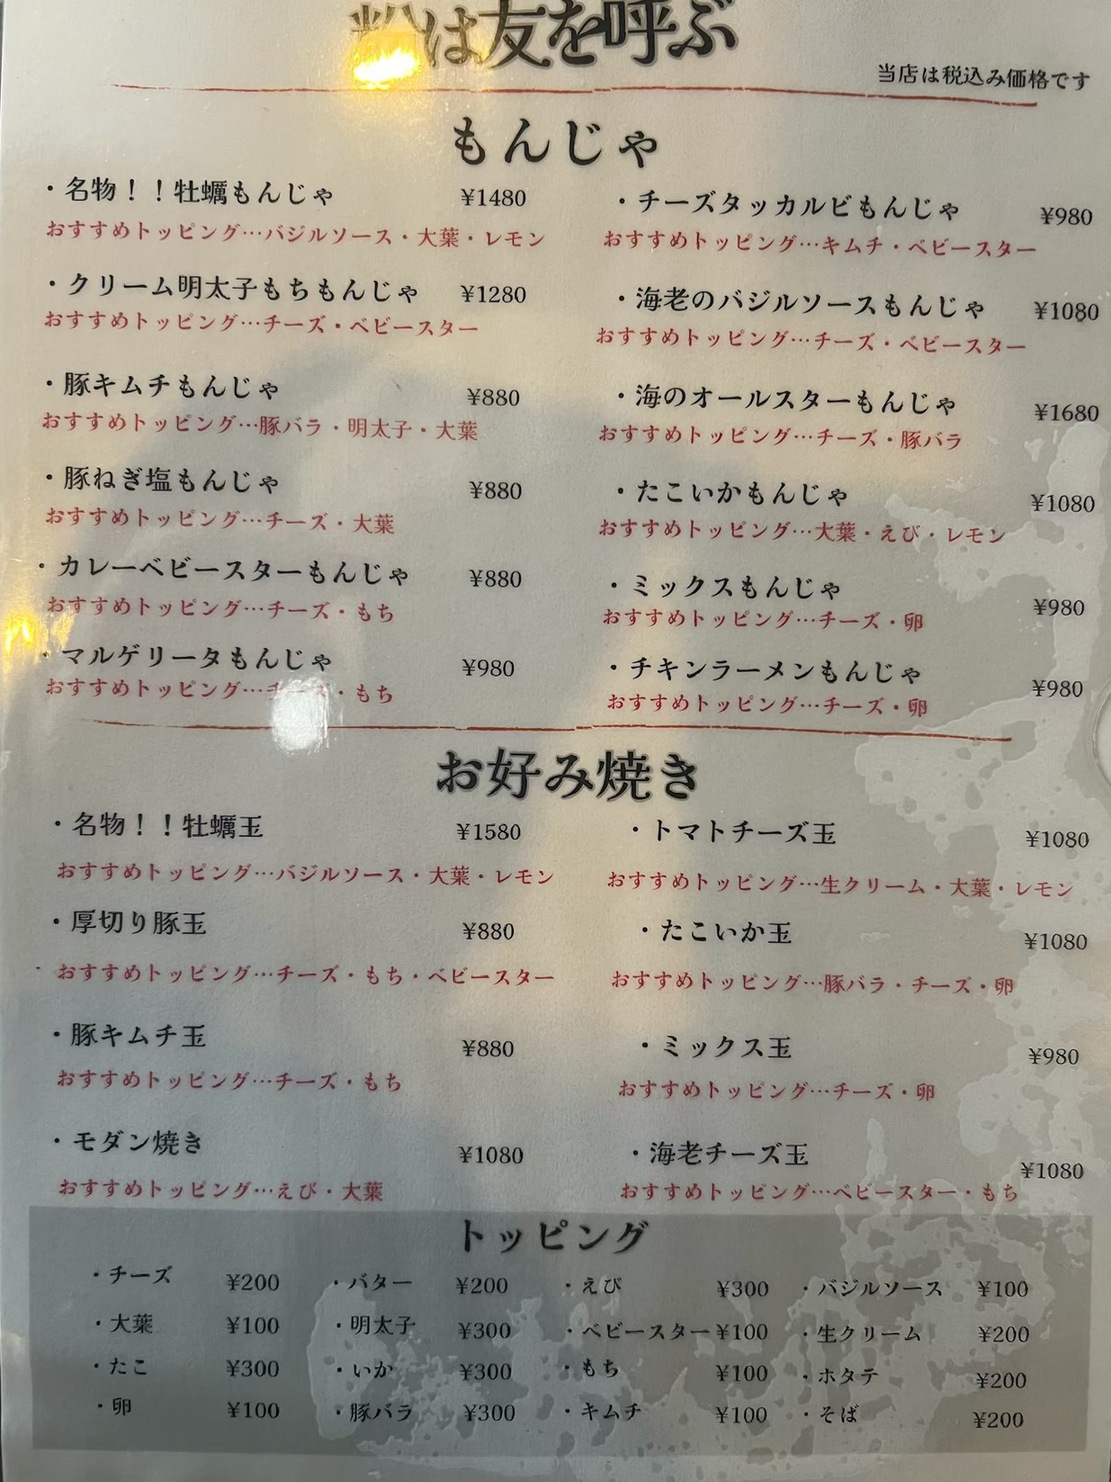 粉は友を呼ぶ
当店は税込み価格です
もんじゃ
・名物！！牡蠣もんじゃ ¥1480
おすすめトッピング…バジルソース・大葉・レモン
・クリーム明太子もちもんじゃ ¥1280
おすすめトッピング…チーズ・ベビースター
・豚キムチもんじゃ ¥880
おすすめトッピング…豚バラ・明太子・大葉
・豚ねぎ塩もんじゃ ¥880
おすすめトッピング…チーズ・大葉
・カレーベビースターもんじゃ ¥880
おすすめトッピング…チーズ・もち
・マルゲリータもんじゃ ¥980
おすすめトッピング…チーズ・もち
・チーズタッカルビもんじゃ ¥980
おすすめトッピング…キムチ・ベビースター
・海老のバジルソースもんじゃ ¥1080
おすすめトッピング…チーズ・ベビースター
・海のオールスターもんじゃ ¥1680
おすすめトッピング…チーズ・豚バラ
・たこいかもんじゃ ¥1080
おすすめトッピング…大葉・えび・レモン
・ミックスもんじゃ ¥980
おすすめトッピング…チーズ・卵
・チキンラーメンもんじゃ ¥980
おすすめトッピング…チーズ・卵
お好み焼き
・名物！！牡蠣玉 ¥1580
おすすめトッピング…バジルソース・大葉・レモン
・厚切り豚玉 ¥880
おすすめトッピング…チーズ・もち・ベビースター
・豚キムチ玉 ¥880
おすすめトッピング…チーズ・もち
・モダン焼き ¥1080
おすすめトッピング…えび・大葉
・トマトチーズ玉 ¥1080
おすすめトッピング…生クリーム・大葉・レモン
・たこいか玉 ¥1080
おすすめトッピング…豚バラ・チーズ・卵
・ミックス玉 ¥980
おすすめトッピング…チーズ・卵
・海老チーズ玉 ¥1080
おすすめトッピング…ベビースター・もち
トッピング
・チーズ ¥200 ・バター ¥200 ・えび ¥300 ・バジルソース ¥100
・大葉 ¥100 ・明太子 ¥300 ・ベビースター ¥100 ・生クリーム ¥200
・たこ ¥300 ・いか ¥300 ・もち ¥100 ・ホタテ ¥200
・卵 ¥100 ・豚バラ ¥300 ・キムチ ¥100 ・そば ¥200